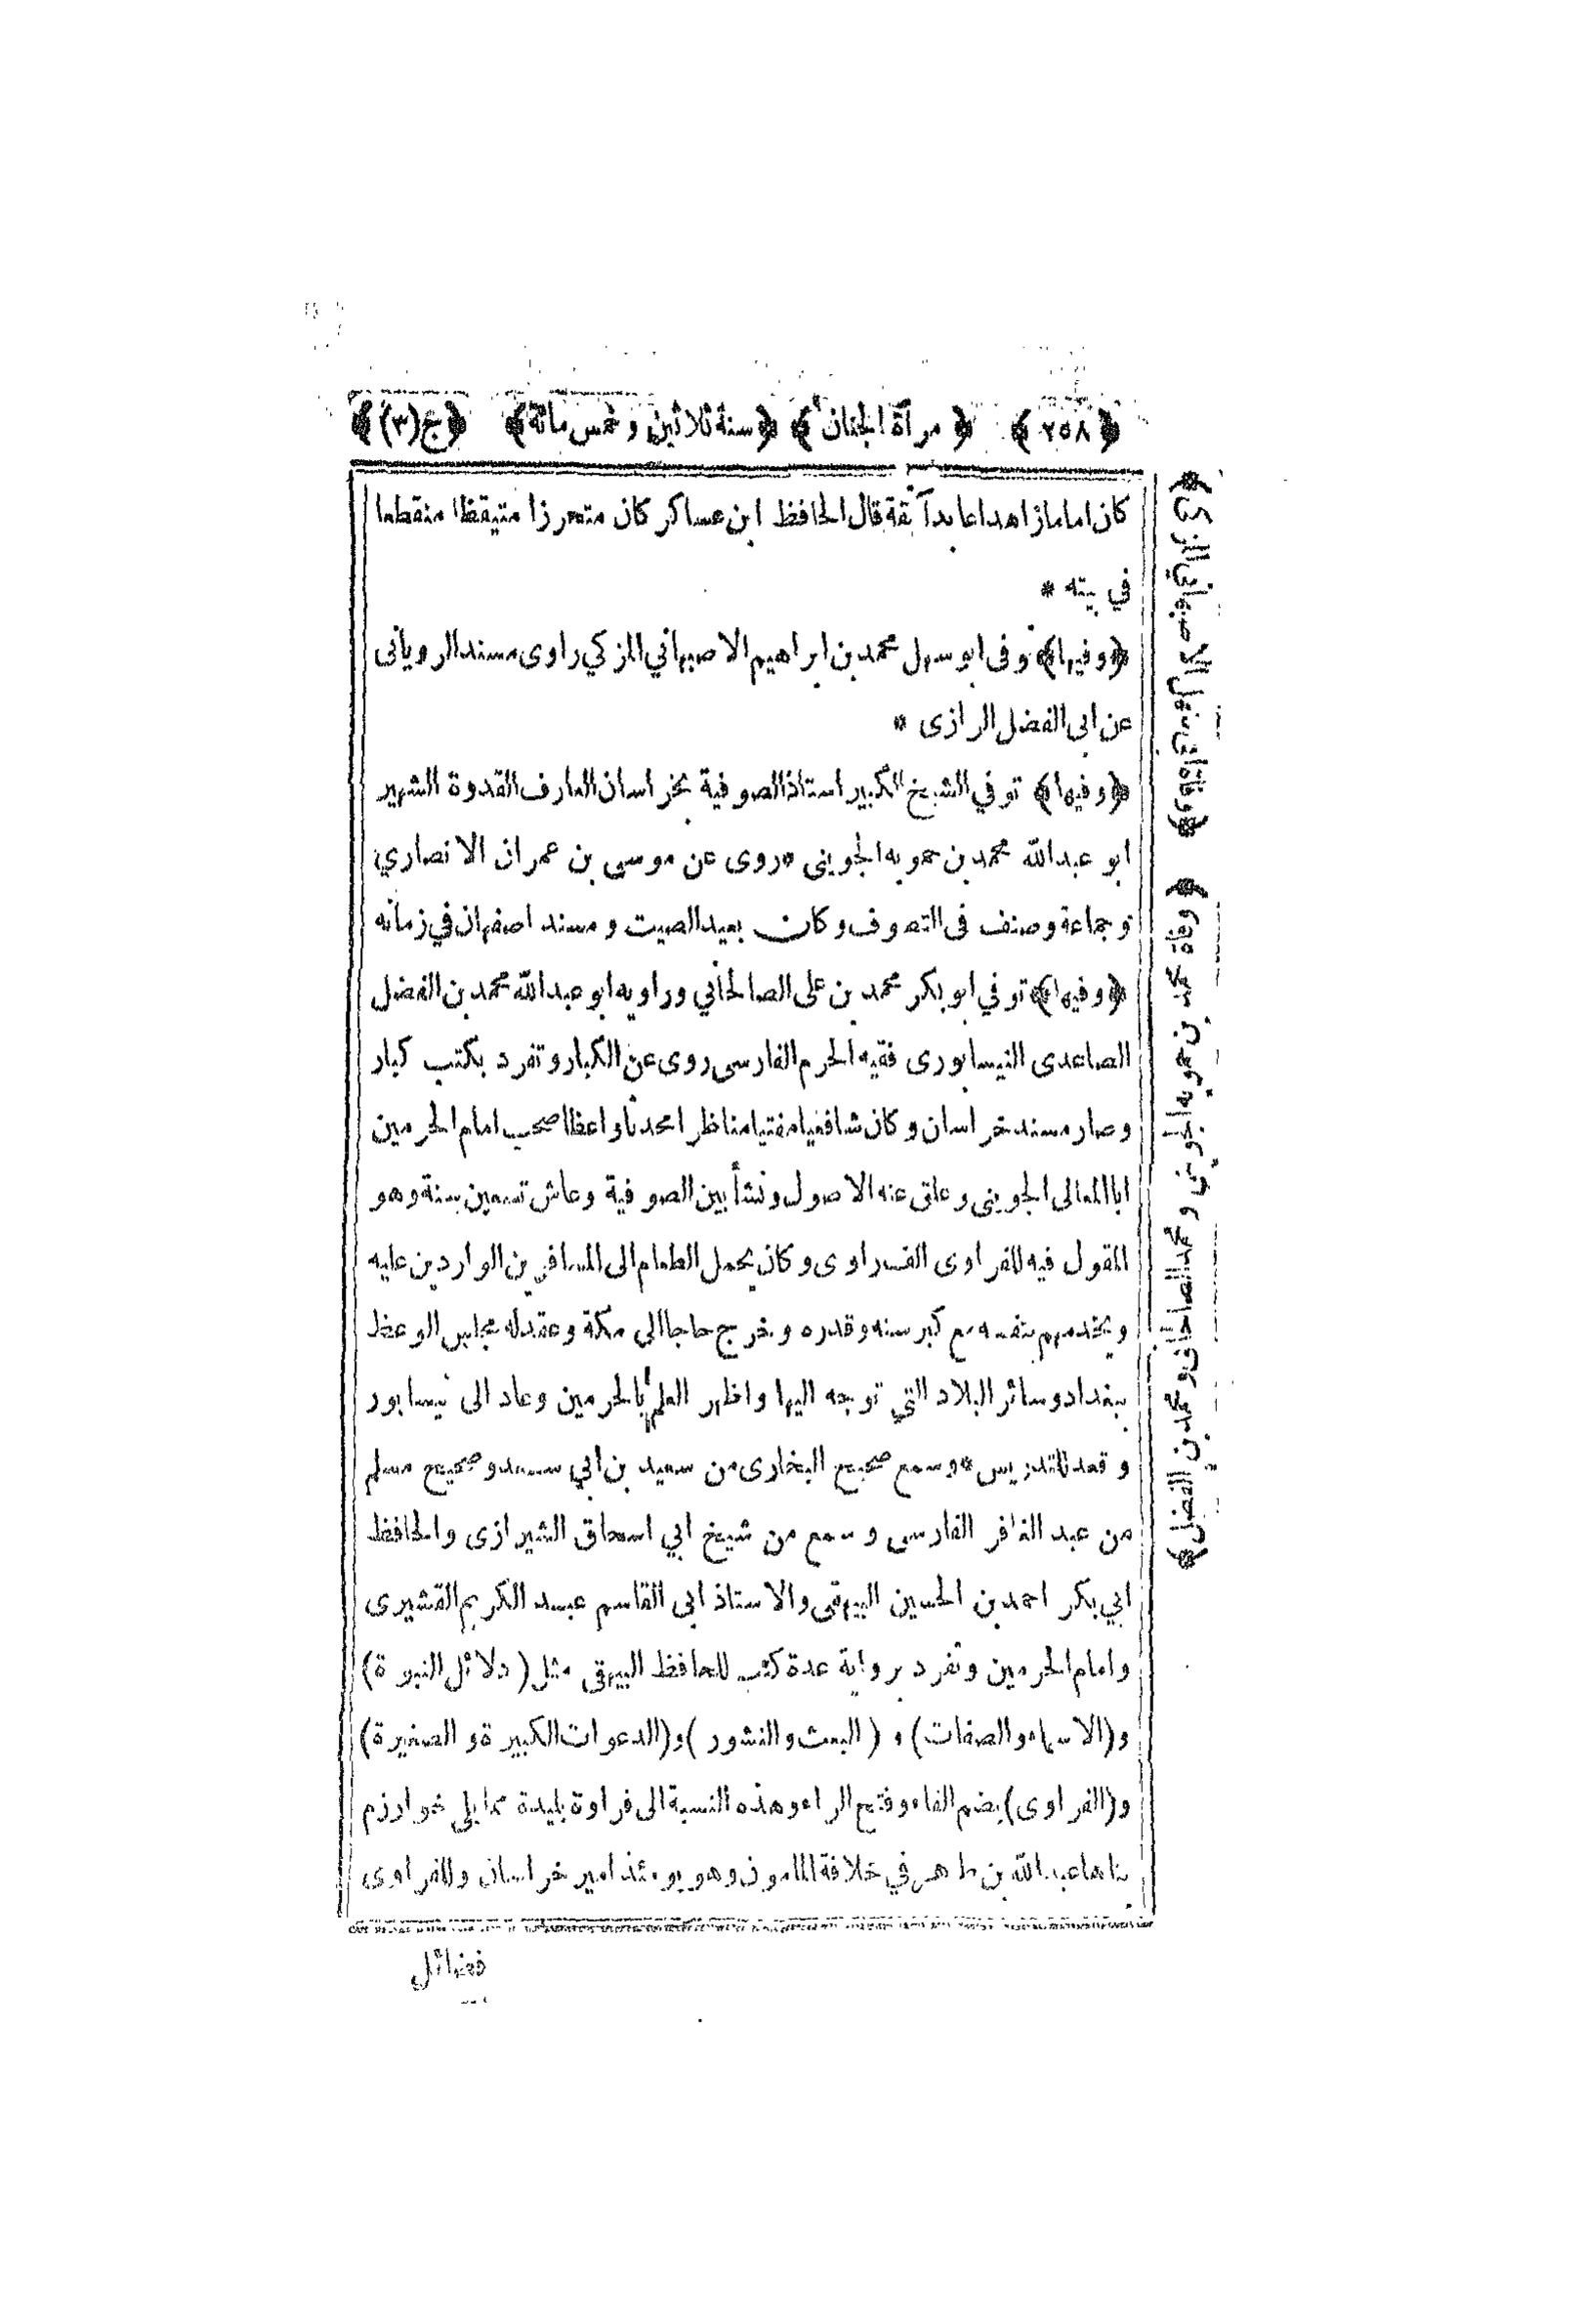 ﴿٢٥٨﴾ ﴿مرآة الجنان﴾ ﴿سنة ثلاثين وخمس مائة﴾ ﴿ج(٣)﴾
كان اماما زاهدا عابدا ثقة قال الحافظ ابن عساكر كان متحرزا متيقظا منقطعا
في بيته *
﴿وفيها﴾ توفى ابو سهل محمد بن ابراهيم الاصبهاني المزكي راوى مسند الرويانى
عن ابى الفضل الرازى *
﴿وفيها﴾ توفي الشيخ الكبير استاذ الصوفية بخراسان العارف القدوة الشهير
ابو عبد الله محمد بن حمويه الجوينى * روى عن موسى بن عمران الانصاري
وجماعة وصنف فى التصوف وكان بعيد الصيت ومسند اصفهان في زمانه
﴿وفيها﴾ توفي ابو بكر محمد بن على الصالحاني وراويه ابو عبد الله محمد بن الفضل
الصاعدى النيسابورى فقيه الحرم الفارسى روى عن الكبار وتفرد بكتب كبار
وصار مسند خراسان وكان شافعيا مفتيا مناظرا محدثا واعظا صحب امام الحرمين
ابا المعالى الجوينى وعلق عنه الاصول ونشأ بين الصوفية وعاش تسعين سنة وهو
المقول فيه للفراوى الف راوى وكان يحمل الطعام الى المسافرين الواردين عليه
ويخدمهم بنفسه مع كبر سنه وقدره وخرج حاجا الى مكة وعقد له مجلس الوعظ
ببغداد وسائر البلاد التي توجه اليها واظهر العلم بالحرمين وعاد الى نيسابور
وقعد للتدريس * وسمع صحيح البخارى من سعيد بن ابي سعيد وصحيح مسلم
من عبد الغافر الفارسى وسمع من شيخ ابي اسحاق الشيرازى والحافظ
ابي بكر احمد بن الحسين البيهقى والاستاذ ابى القاسم عبد الكريم القشيرى
وامام الحرمين وتفرد برواية عدة كتب للحافظ البيهقى مثل (دلائل النبوة)
و(الاسماء والصفات) و (البعث والنشور) و(الدعوات الكبيرة والصغيرة)
و(الفراوى) بضم الفاء وفتح الراء وهذه النسبة الى فراوة بليدة مما يلي خوارزم
بناها عبد الله بن طاهر في خلافة المامون وهو يومئذ امير خراسان وللفراوى
فضائل
﴿وفاة ابى سهل الاصبهانى المزكى﴾
﴿وفاة محمد بن حمويه الجوينى و محمد الصالحانى و محمد بن الفضل﴾